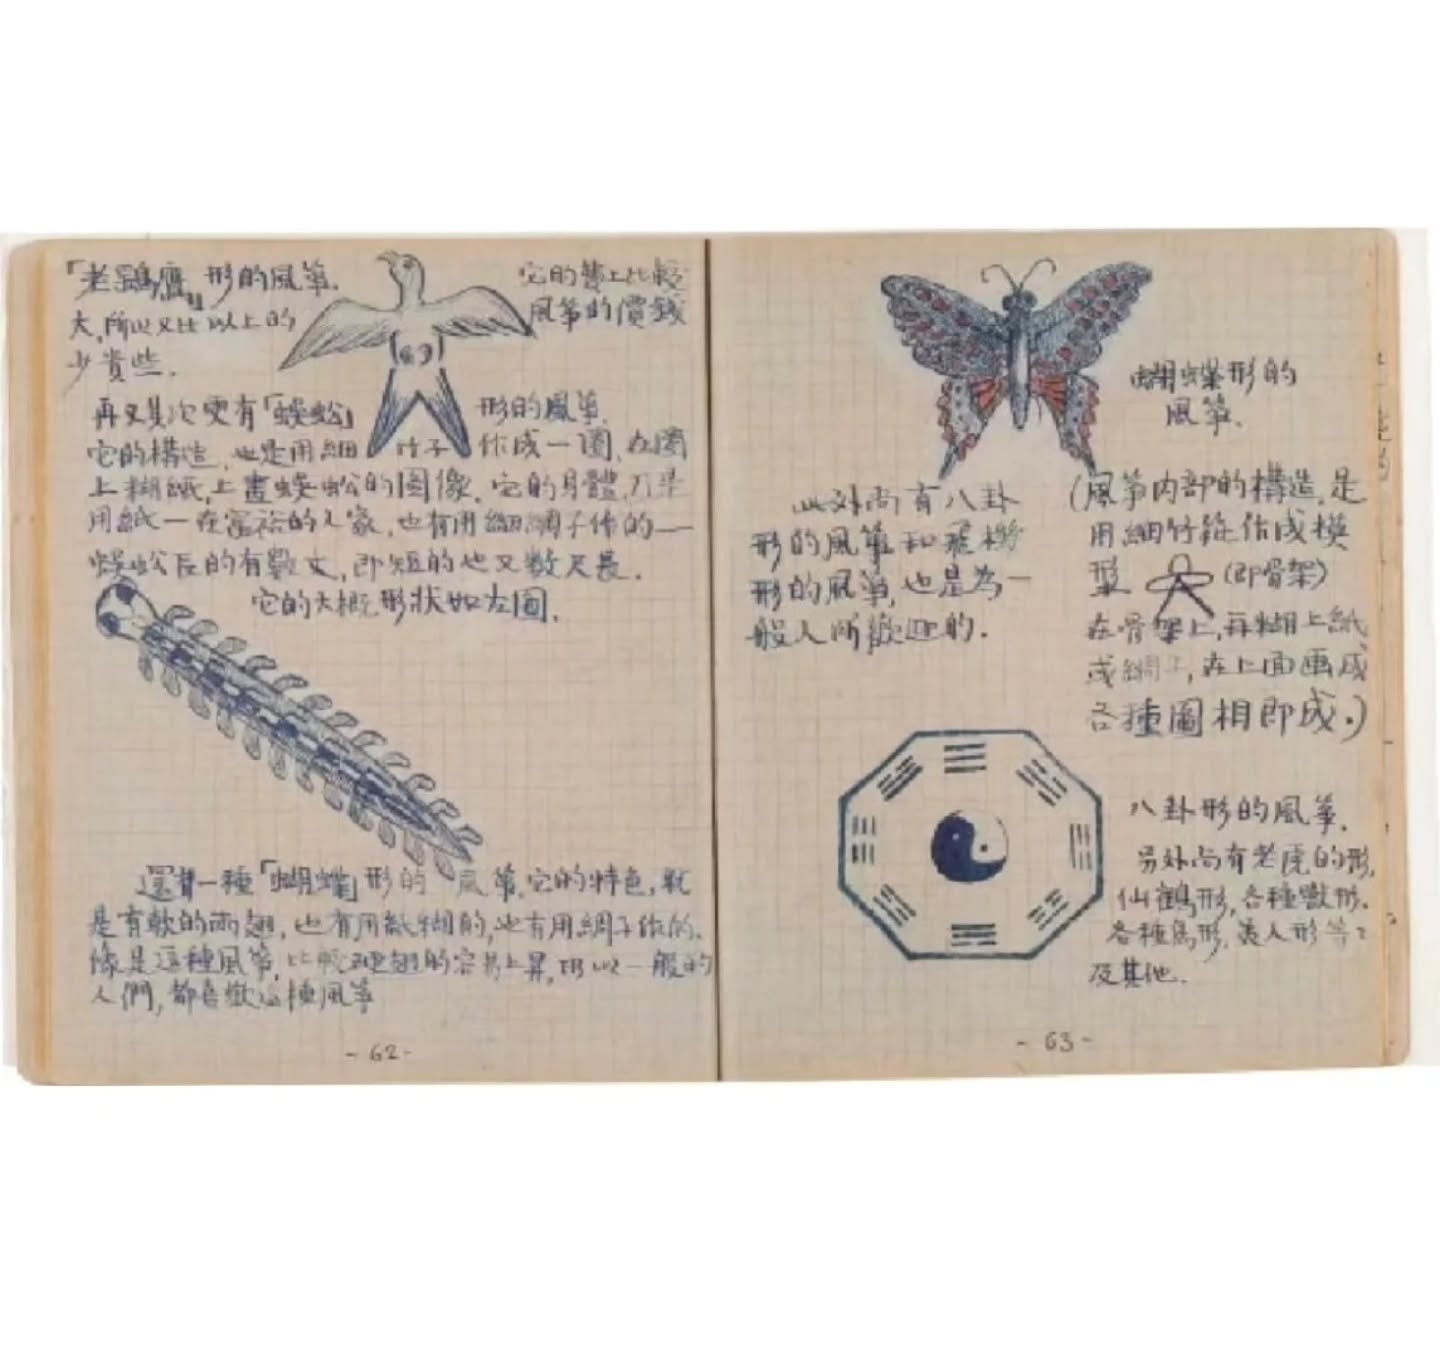 「老鷂鷹」形的風箏. 它的體上比較
大,所以又比以上的風箏的價錢
少貴些.
再又其次更有「蜈蚣」形的風箏.
它的構造,也是用細竹子作成一圈,在圈
上糊紙,上畫蜈蚣的圖像.它的身體,乃是
用紙—在富裕的人家,也有用細綢子作的—
蜈蚣長的有數丈,即短的也又數尺長.
它的大概形狀如左圖.
還有一種「蝴蝶」形的風箏.它的特色,就
是有軟的兩翅,也有用紙糊的,也有用綢子作的.
像是這種風箏,比較硬翅的容易上昇,所以一般的
人們,都喜歡這種風箏
-62-
蝴蝶形的
風箏.
此外尚有八卦
形的風箏和飛機
形的風箏,也是為一
般人所歡迎的.
(風箏內部的構造,是
用細竹篦作成模
型 (即骨架)
在骨架上,再糊上紙
或綢子,在上面画成
各種圖相即成.)
八卦形的風箏.
另外尚有老虎的形,
仙鶴形,各種獸形.
各種鳥形,美人形等等
及其他.
-63-